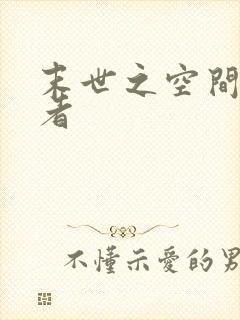 末世之空間
者
不懂示愛的男